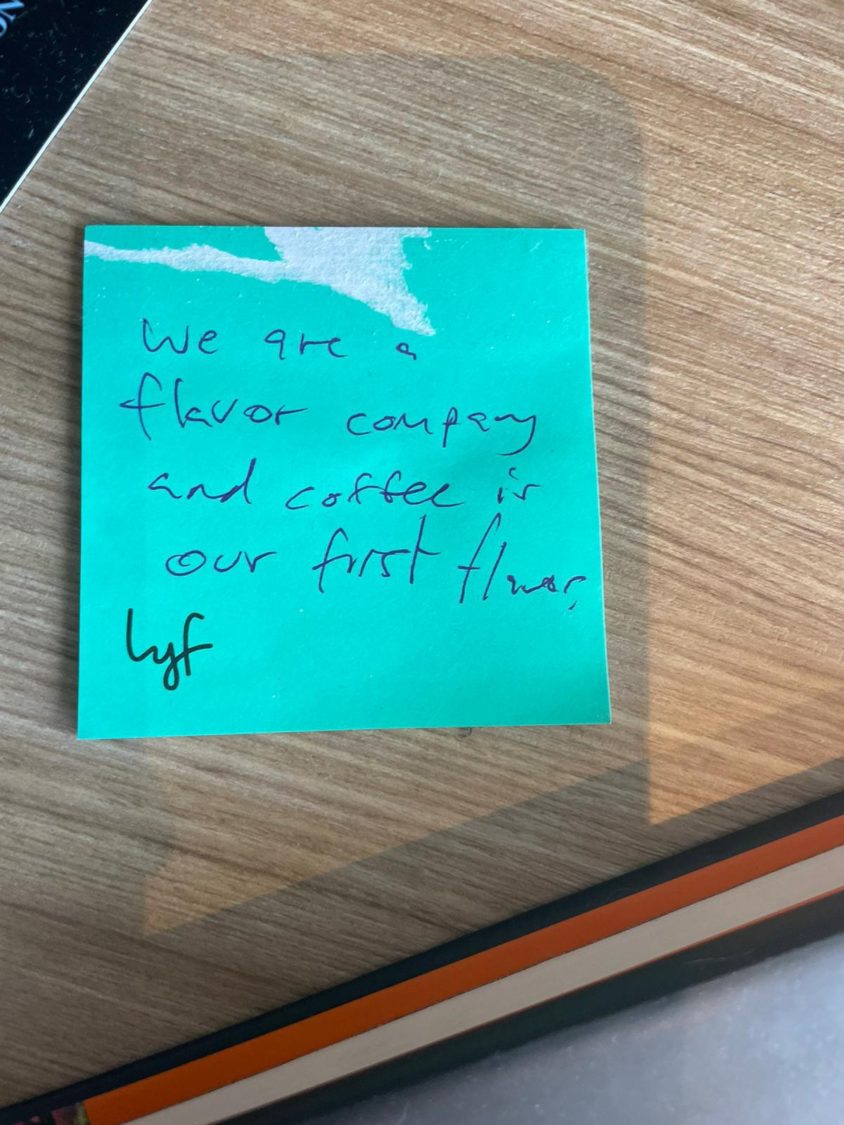 We are a
flavor company
and coffee is
our first flavor.
lyf